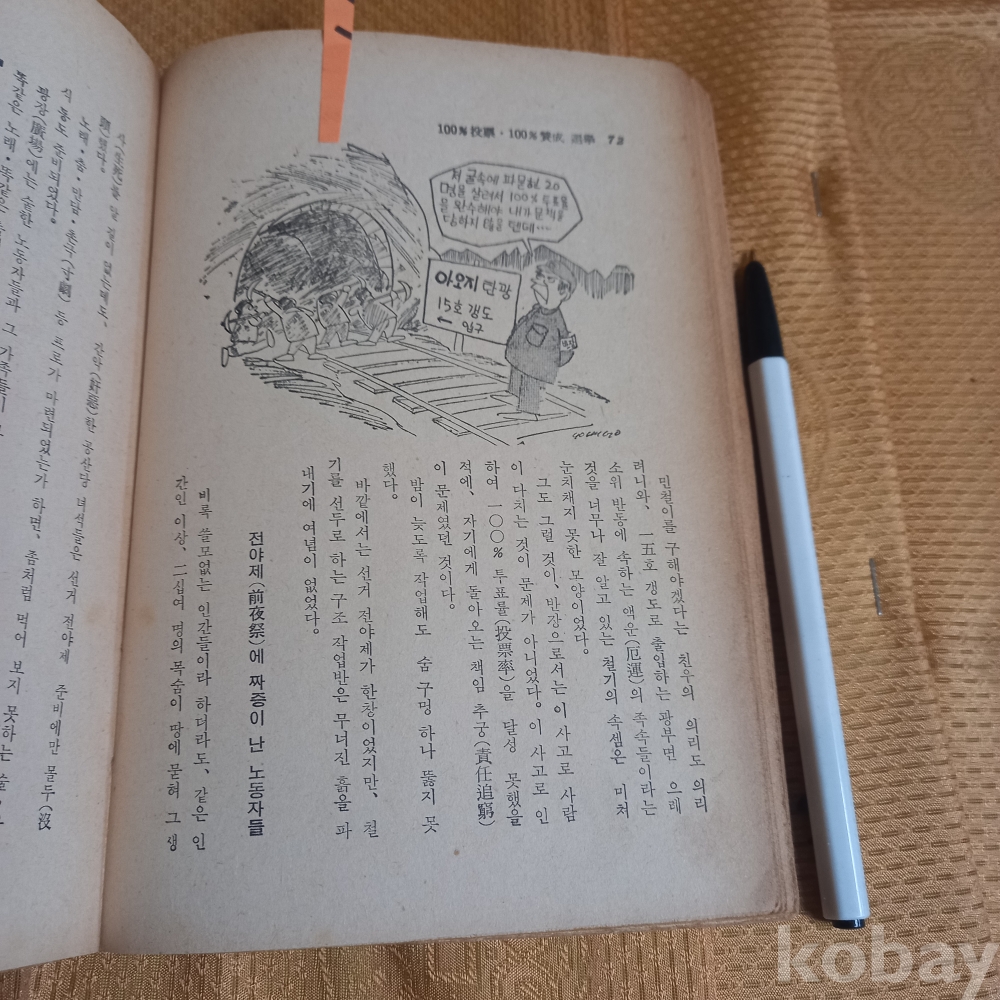 100％投票·100％贊成 選擧 73
저 굴속에 파묻힌 20
명을 살려서 100% 투표율
을 완수해야 내가 문책을
당하지 않을 텐데…
아오지 탄광
15호 갱도
← 입구
민철이를 구해야겠다는 친우의 의리도 의리
려니와, 一五호 갱도로 출입하는 광부면 으레
소위 반동에 속하는 액운(厄運)의 족속들이라는
것을 너무나 잘 알고 있는 철기의 속셈은 미처
눈치채지 못한 모양이었다.
그도 그럴 것이, 반장으로서는 이 사고로 사람
이 다치는 것이 문제가 아니었다. 이 사고로 인
하여 一〇〇% 투표률(投票率)을 달성 못했을
적에, 자기에게 돌아오는 책임 추궁(責任追窮)
이 문제였던 것이다.
밤이 늦도록 작업해도 숨 구멍 하나 뚫지 못
했다.
바깥에서는 선거 전야제가 한창이었지만, 철
기를 선두로 하는 구조 작업반은 무너진 흙을 파
내기에 여념이 없었다.
전야제(前夜祭)에 짜증이 난 노동자들
비록 쓸모없는 인간들이라 하더라도, 같은 인
간인 이상, 二십여 명의 목숨이 땅에 묻혀 그 생
을 알 길이 없는데도, 간악(奸惡)한 공산당 녀석들은 선거 전야제 준비에만 몰두(沒
했다.
노래·춤·만담·촌극(寸劇) 등 프로가 마련되었는가 하면, 좀처럼 먹어 보지 못하는 술
식 등도 준비되었다.
광장(廣場)에는 숱한 노동자들과 그 가족들이
똑같은 노래·똑같은
kobay